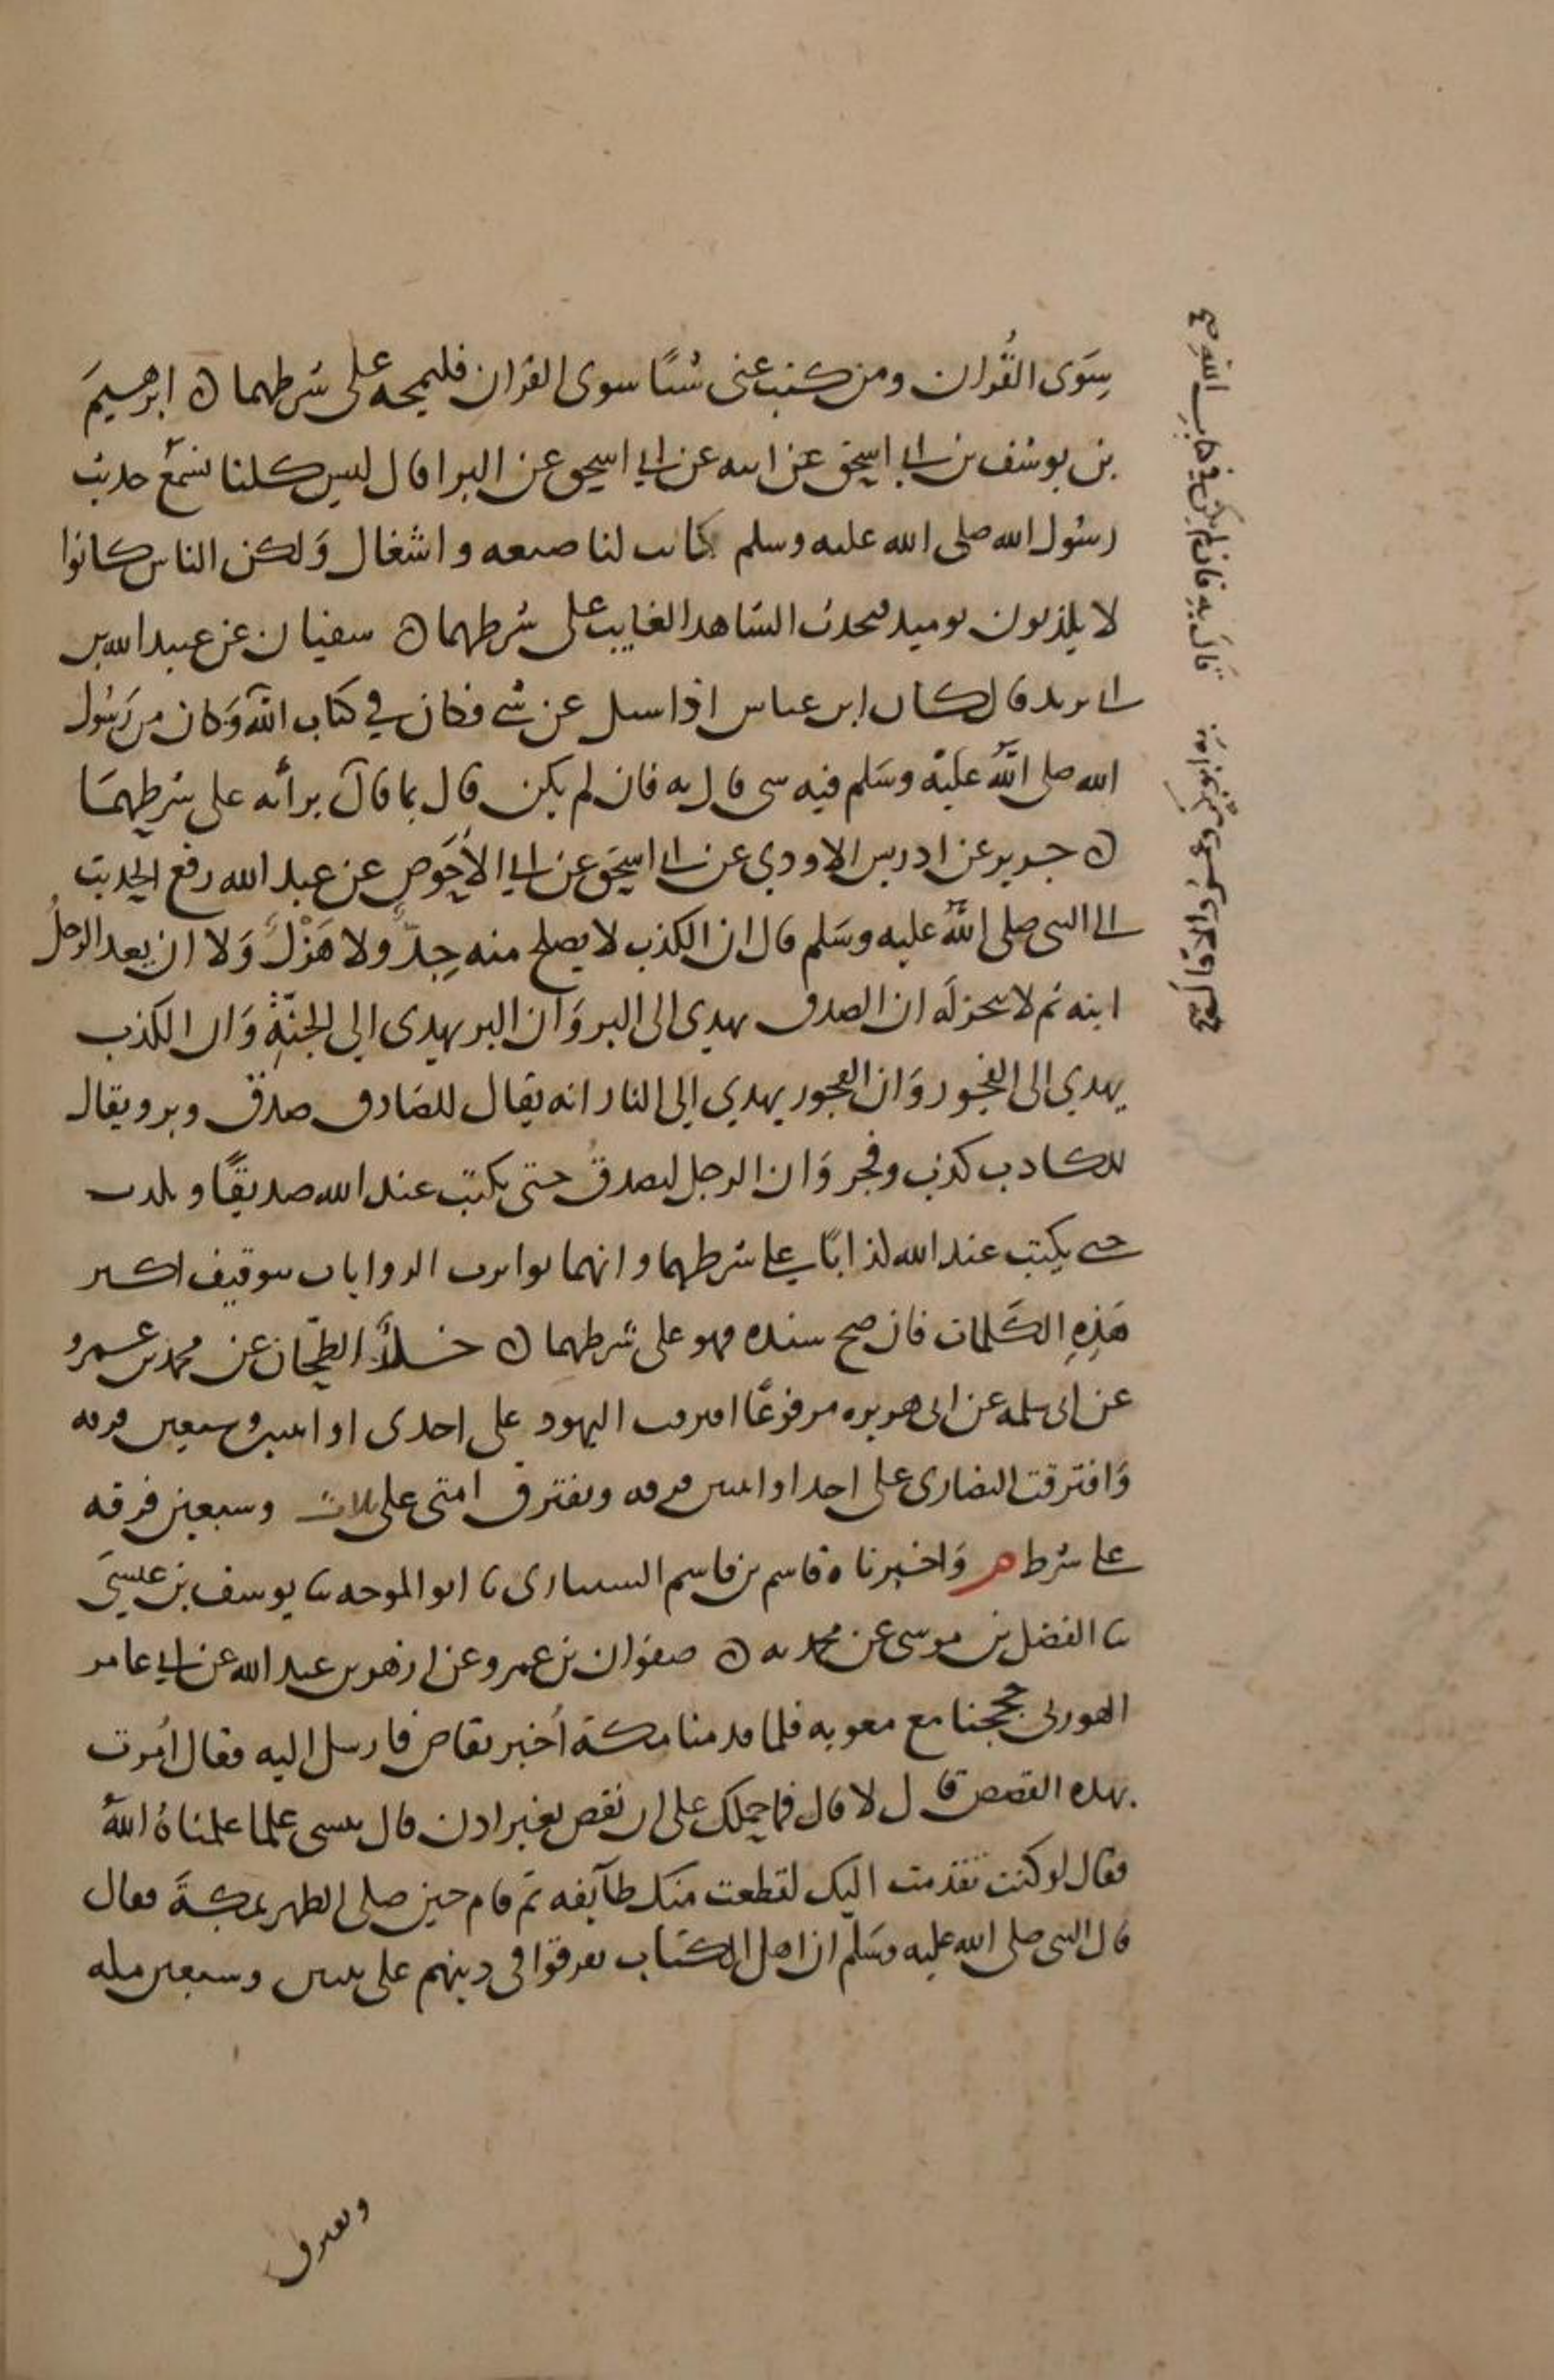 سِوَى القُرآن ومن كتب عنى شيئا سوى القران فليمحه على شرطهما ه ابرهيم
بن يوسف بن ابي اسحق عن ابيه عن ابي اسحق عن البرا قال ليس كلنا نسمع حديث
رسول الله صلى الله عليه وسلم كانت لنا ضيعه واشغال ولكن الناس كانوا
لا يكذبون يوميد فيحدث الشاهد الغايب على شرطهما ه سفيان عن عبيد الله بن
ابي يزيد قال كان ابن عباس اذا سيل عن شي فكان في كتاب الله وكان من رسول
الله صلى الله عليه وسلم فيه شي قال به فان لم يكن قال بما قال برأيه على شرطهما
ه جرير عن ادريس الاودي عن ابي اسحق عن ابي الأحوص عن عبد الله رفع الحديث
الى النبى صلى الله عليه وسلم قال ان الكذب لا يصلح منه جِدٌّ ولا هَزْلٌ ولا ان يعد الرجلُ
ابنه ثم لا ينجز له ان الصدق يهدى الى البر وان البر يهدى الى الجنةِ وان الكذب
يهدي الى الفجور وان الفجور يهدي الى النار انه يقال للصادق صدق وبر ويقال
للكاذب كذب وفجر وان الرجل ليصدقُ حتى يكتب عند الله صديقًا ويكذب
حتى يكتب عند الله كذابًا على شرطهما وانهما تواترت الروايات بتوقيف اكثر
هَذِهِ الكلمات فان صح سنده فهو على شرطهما ه خلاد الطحان عن محمد بن عمرو
عن ابى سلمه عن ابى هريره مرفوعًا افترقت اليهود على احدى او اثنين وسبعين فرقه
وافترقت النصارى على احد او اثنين فرقه وتفترق امتى على ثلاث وسبعين فرقه
على شرط م واخبرناه قاسم بن قاسم السيارى ثنا ابو الموجه ثنا يوسف بن عيسى
ثنا الفضل بن موسى عن محمد به ه صفوان بن عمرو عن ازهر بن عبد الله عن ابي عامر
الهوزنى حججنا مع معويه فلما قدمنا مكة أخبر بقاص فارسل اليه فقال أمرت
بهذه القصص قال لا قال فما حملك على ان تقص بغير اذن قال ننسى علما علمناهُ اللهُ
فقال لو كنت تقدمت اليك لقطعت منك طآيفه ثم قام حين صلى الظهر بمكة فقال
قال النبى صلى الله عليه وسلم ان اهل الكتاب تفرقوا فى دينهم على ثنتين وسبعين مله
وتفترق
قال به فان لم يكن في كتاب الله صح